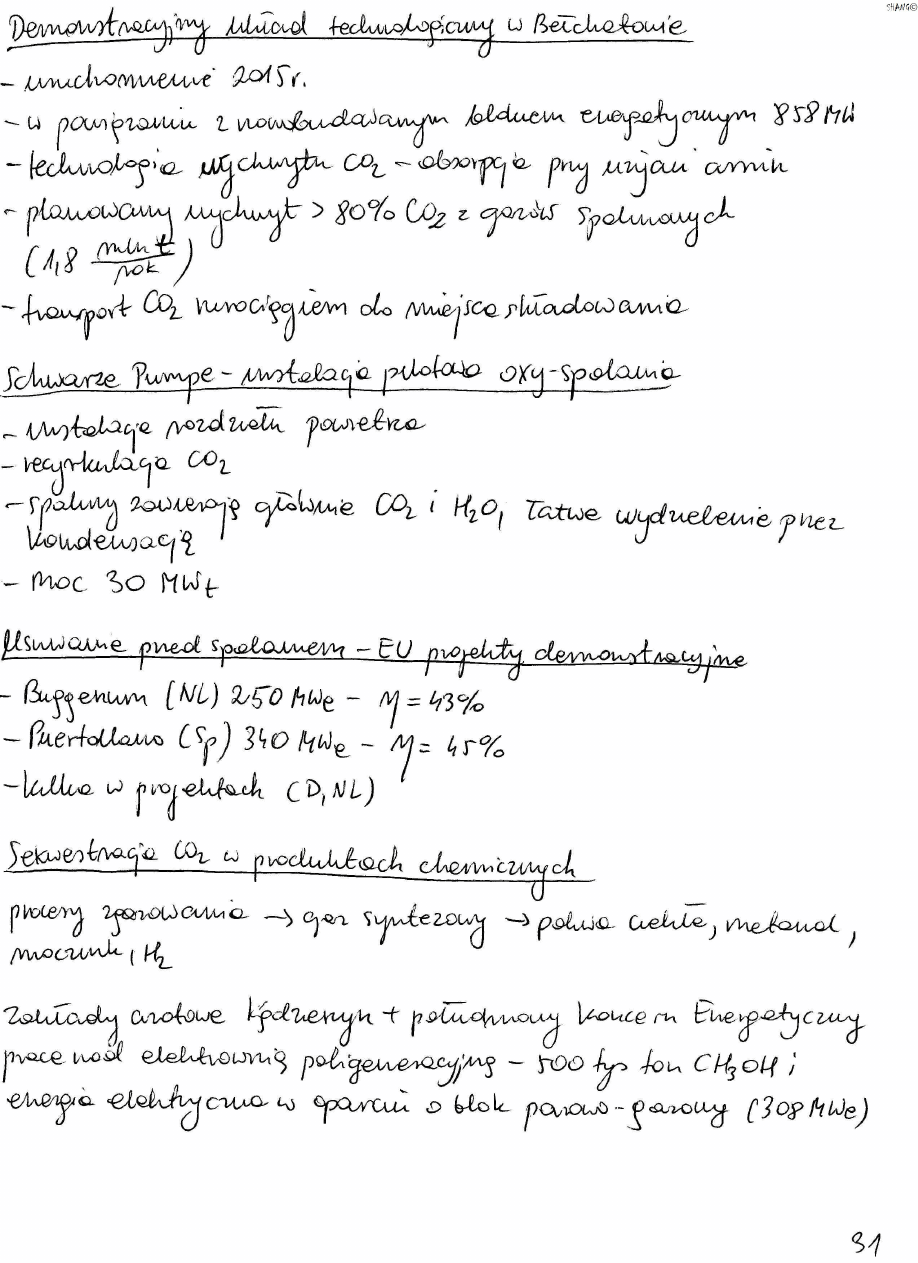 SHANG©
Demonstracyjny układ technologiczny w Bełchatowie
- uruchomienie 2015r.
- w powiązaniu z nowobudowanym blokiem energetycznym 858 MW
- technologia wychwytu CO₂ - absorpcja przy użyciu amin
- planowany wychwyt > 80% CO₂ z gazów spalinowych
(1,8 mln t/rok)
- transport CO₂ rurociągiem do miejsca składowania
Schwarze Pumpe - instalacja pilotowa oxy-spalania
- instalacja rozdziału powietrza
- recyrkulacja CO₂
- spaliny zawierają głównie CO₂ i H₂O, łatwe wydzielenie przez
kondensację
- moc 30 MWt
Usuwanie przed spalaniem - EU projekty demonstracyjne
- Buggenum (NL) 250 MWe - η = 43%
- Puertollano (Sp) 340 MWe - η = 45%
- kilka w projektach (D, NL)
Sekwestracja CO₂ w produktach chemicznych
procesy zgazowania → gaz syntezowy → paliwa ciekłe, metanol,
mocznik, H₂
Zakłady azotowe Kędzierzyn + południowy koncern Energetyczny
prace nad elektrownią poligeneracyjną - 500 tys ton CH₃OH i
energia elektryczna w oparciu o blok parowo-gazowy (308 MWe)
31